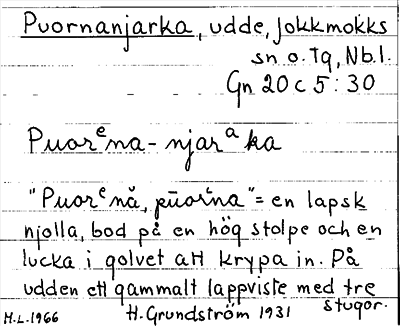 Puornanjarka, udde, Jokkmokks
sn o. tg, Nb.l.
Gn 20 c 5 : 30
Puorᵉna-njarᵃka
"Puorᵉnȧ, pūorᵉna" = en lapsk
njolla, bod på en hög stolpe och en
lucka i golvet att krypa in. På
udden ett gammalt lappviste med tre
stugor.
H.L. 1966 H. Grundström 1931